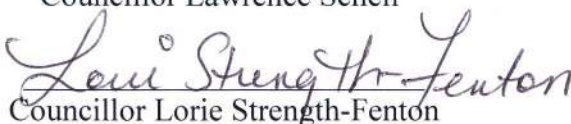 Councillor Lawrence
Lorie Strength-Fenton
Councillor Lorie Strength-Fenton